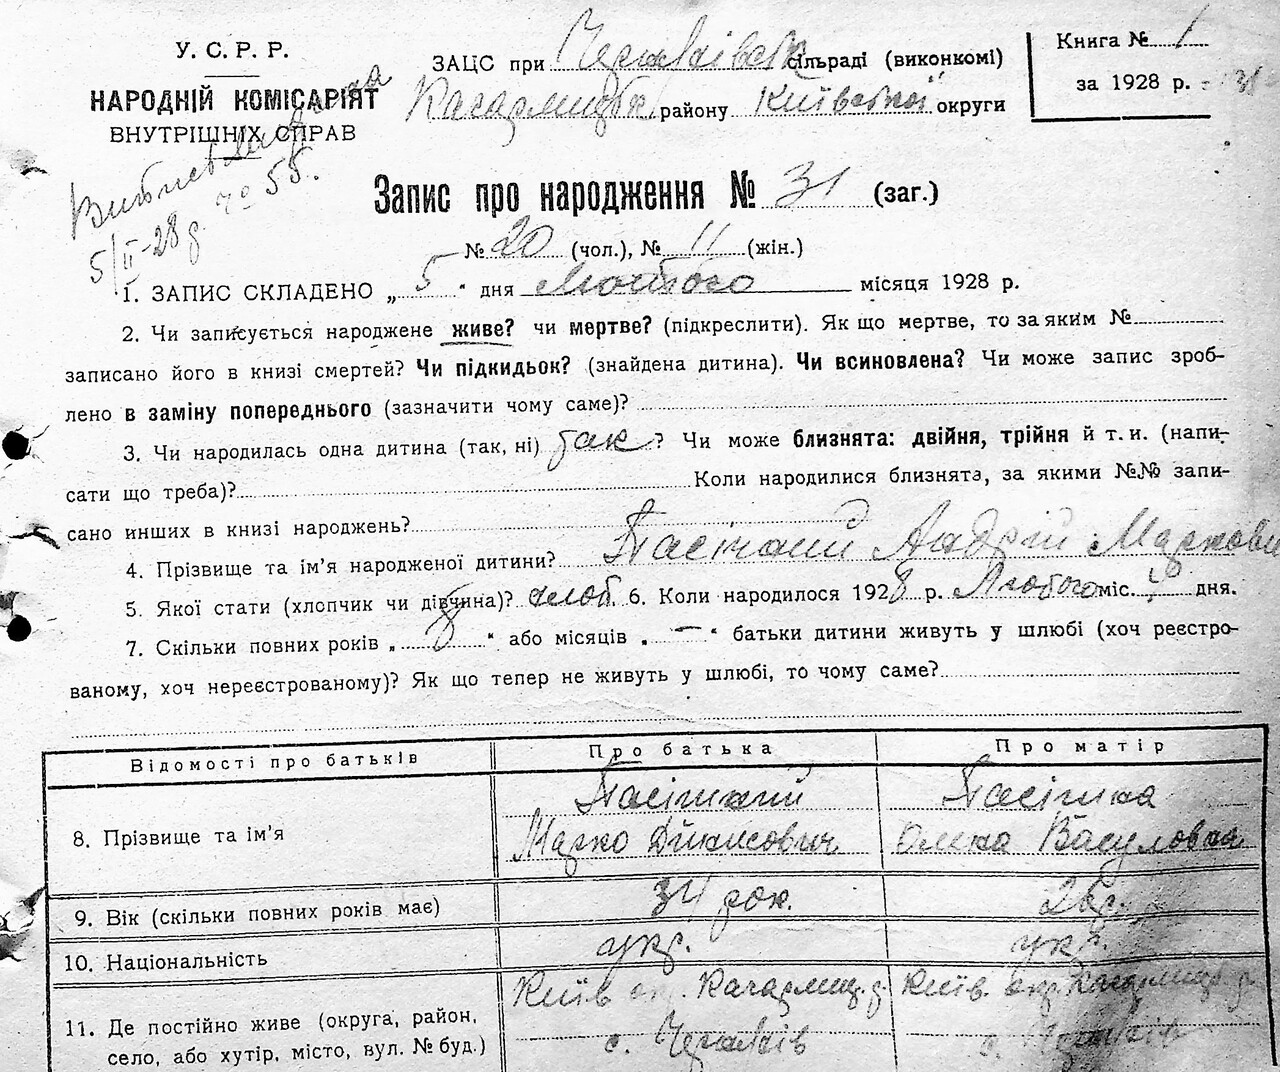 У. С. Р. Р.
НАРОДНІЙ КОМІСАРІЯТ
ВНУТРІШНІХ СПРАВ
5/II-28 р. № 55.
ЗАЦС при сільраді (виконкомі)
району Київської округи
Книга № 1
за 1928 р. - 31 -
Запис про народження № 31 (заг.)
№ 20 (чол.), № 11 (жін.)
1. ЗАПИС СКЛАДЕНО „ 5 “ дня Лютого місяця 1928 р.
2. Чи записується народжене живе? чи мертве? (підкреслити). Як що мертве, то за яким №
записано його в книзі смертей? Чи підкидьок? (знайдена дитина). Чи всиновлена? Чи може запис зроб-
лено в заміну попереднього (зазначити чому саме)?
3. Чи народилась одна дитина (так, ні) так? Чи може близнята: двійня, трійня й т. и. (напи-
сати що треба)? Коли народилися близнята, за якими №№ запи-
сано инших в книзі народжень?
4. Прізвище та ім’я народженої дитини? Пасічний Андрій Маркови
5. Якої стати (хлопчик чи дівчина)? хлоб. 6. Коли народилося 1928 р. Лютого міс. дня.
7. Скільки повних років „ 8 “ або місяців „ — “ батьки дитини живуть у шлюбі (хоч реєстро-
ваному, хоч нереєстрованому)? Як що тепер не живуть у шлюбі, то чому саме?
Відомості про батьків Про батька Про матір
8. Прізвище та ім’я
Пасічний Пасічна
Марко Дінисович Олена Васуловна
9. Вік (скільки повних років має) 34 рок. 26 р.
10. Національність укр. укр.
11. Де постійно живе (округа, район,
село, або хутір, місто, вул. № буд.)
Київ окр. Кагарлиц. р. Київ. окр. Кагарлиц р.
с. с.